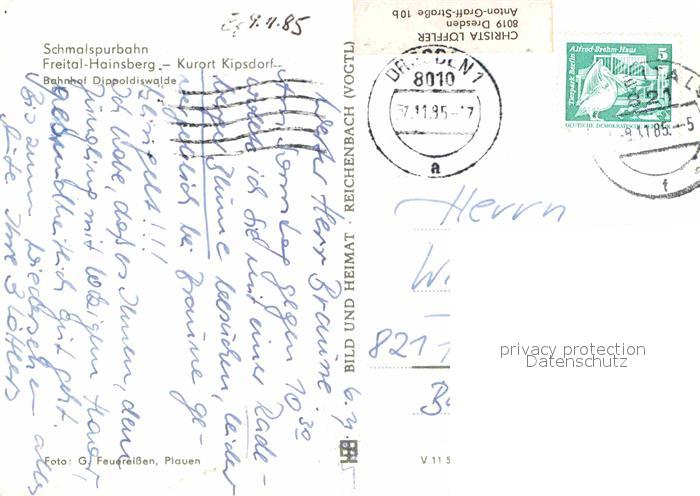 Eg 9.11.85
Schmalspurbahn
Freital-Hainsberg – Kurort Kipsdorf
Bahnhof Dippoldiswalde
6.11.85
Lieber Herr Braune.
am Sonntag gegen 10³⁰
wollte ich Sie mit einer Rade-
berger Blume besuchen, leider
vergeblich bei Braune ge-
klingelt!!!
Ich hoffe, daß es Ihnen, dem
Jüngling mit lockigem Haar,
gesundheitlich gut geht.
Bis zum Wiedersehen alles
Gute Ihre Löfflers
Foto: G. Feuereißen, Plauen
BILD UND HEIMAT REICHENBACH (VOGTL)
V 11 5
CHRISTA LÖFFLER
8019 Dresden
Anton-Graff-Straße 10b
DRESDEN 1
8010
-7.11.85.-17
a
Tierpark Berlin
Alfred-Brehm-Haus
5
DEUTSCHE DEMOKRATISCHE
FREITAL
821
-8.11.85.-5
f
Herrn
W
821
B
privacy protection
Datenschutz